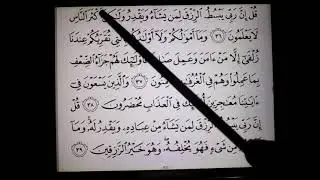 قُلْ إِنَّ رَبِّي يَبْسُطُ الرِّزْقَ لِمَن يَشَاءُ وَيَقْدِرُ وَلَٰكِنَّ أَكْثَرَ النَّاسِ
لَا يَعْلَمُونَ ٣٦ وَمَا أَمْوَالُكُمْ وَلَا أَوْلَادُكُم بِالَّتِي تُقَرِّبُكُمْ عِندَنَا
زُلْفَىٰ إِلَّا مَنْ ءَامَنَ وَعَمِلَ صَالِحًا فَأُولَٰئِكَ لَهُمْ جَزَاءُ الضِّعْفِ
بِمَا عَمِلُوا وَهُمْ فِي الْغُرُفَاتِ ءَامِنُونَ ٣٧ وَالَّذِينَ يَسْعَوْنَ فِي
ءَايَاتِنَا مُعَاجِزِينَ أُولَٰئِكَ فِي الْعَذَابِ مُحْضَرُونَ ٣٨ قُلْ
إِنَّ رَبِّي يَبْسُطُ الرِّزْقَ لِمَن يَشَاءُ مِنْ عِبَادِهِ وَيَقْدِرُ لَهُ وَمَا
مِّن شَيْءٍ فَهُوَ يُخْلِفُهُ وَهُوَ خَيْرُ الرَّازِقِينَ ٣٩